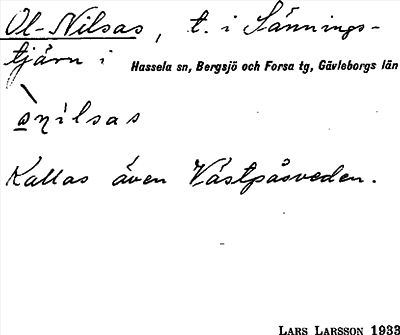 Ol-Nilsas, t. i Sännings-
tjärn i Hassela sn, Bergsjö och Forsa tg, Gävleborgs län
Kallas även Västpåsveden.
LARS LARSSON 1933